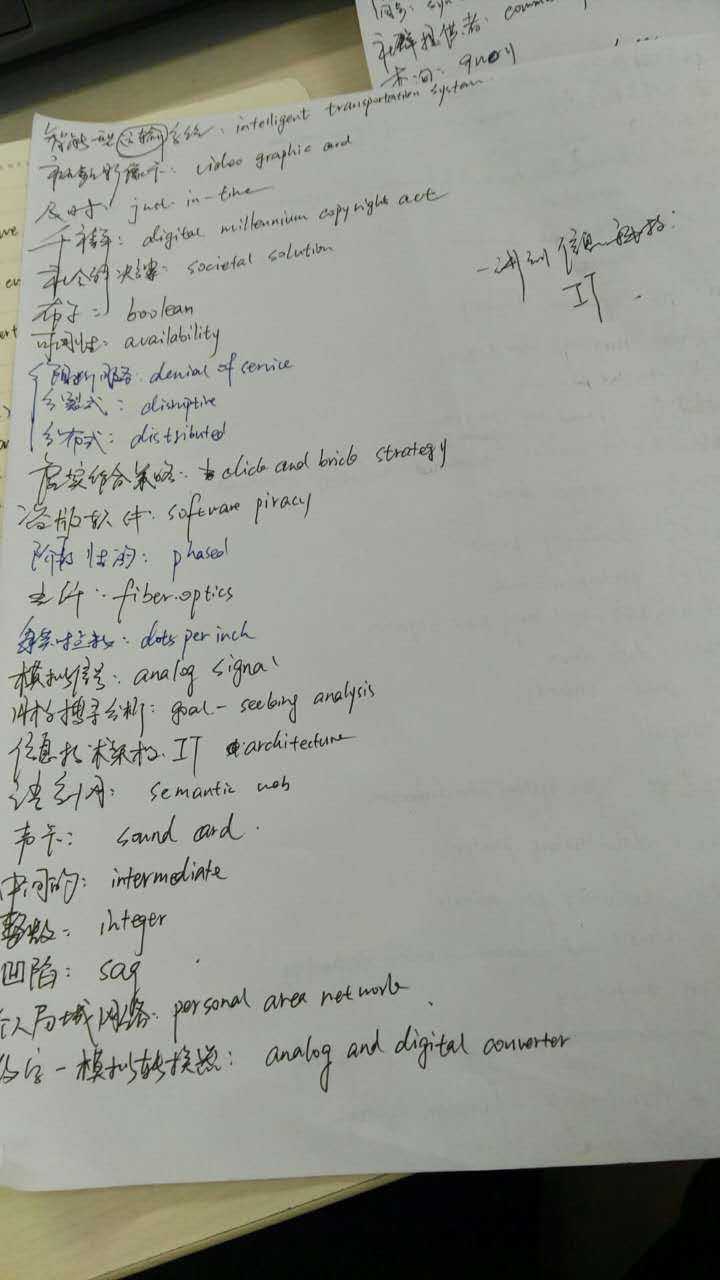 同步: syn
社群提供者: comm
查询: query
智能型运输系统: intelligent transportation system
视频影像卡: video graphic card
及时: just-in-time
千禧年: digital millennium copyright act
社会解决案: societal solution
布尔: boolean
可用性: availability
阻断服务: denial of service
分裂式: disruptive
分布式: distributed
虚实结合策略: click and brick strategy
盗版软件: software piracy
阶段性的: phased
光纤: fiber optics
dots per inch
模拟信号: analog signal
目标搜寻分析: goal-seeking analysis
信息技术架构 IT architecture
语意网: semantic web
声卡: sound card.
中间的: intermediate
整数: integer
凹陷: sag
个人局域网络: personal area network
数字-模拟转换器: analog and digital converter
一讲到信息科技:
IT.